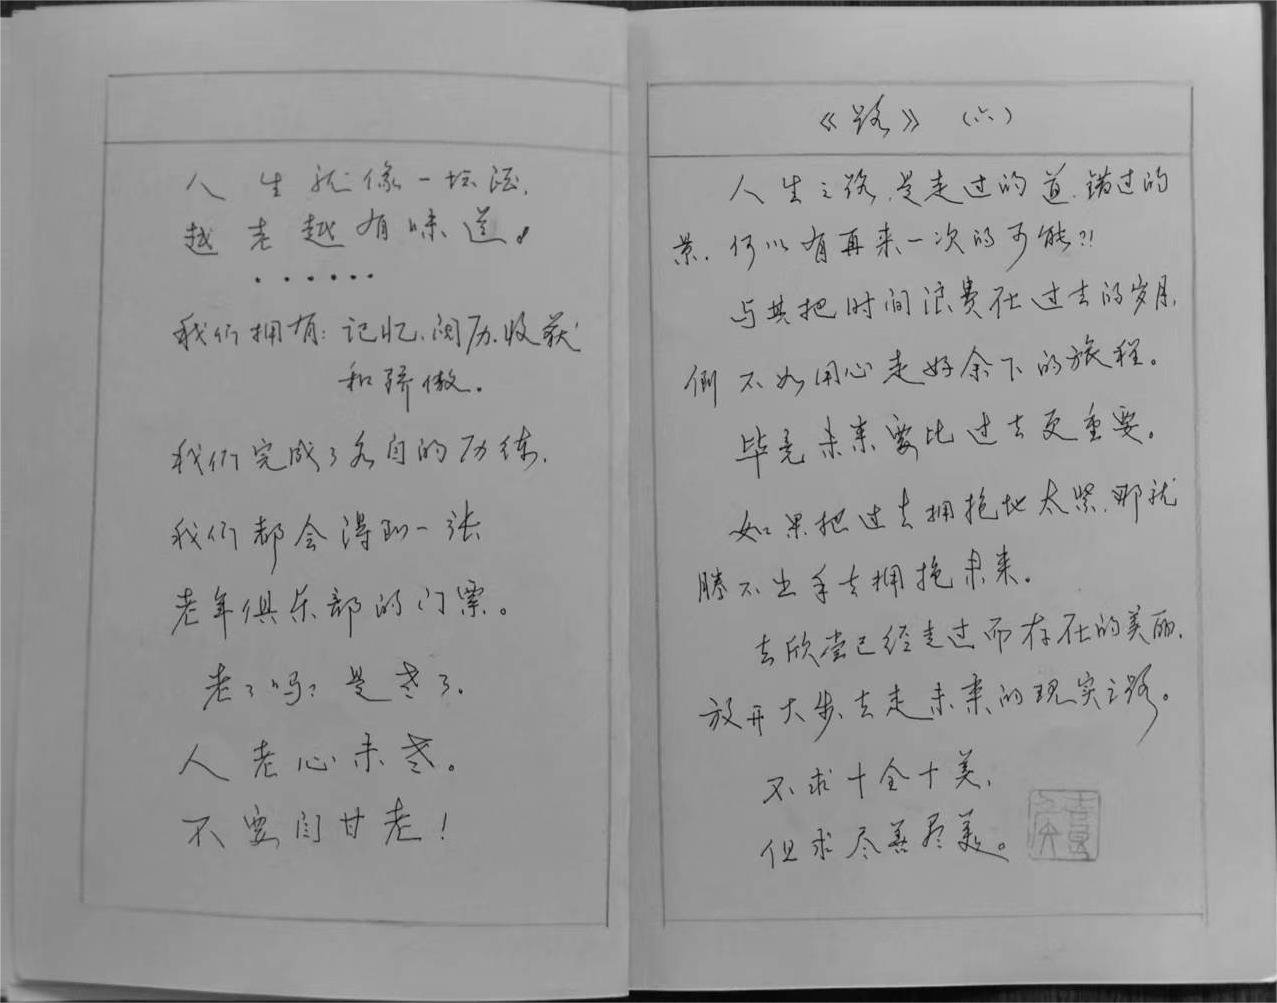 人生就像一坛酒,
越老越有味道。
······
我们拥有:记忆、阅历、收获
和骄傲。
我们完成了各自的历练,
我们都会得到一张
老年俱乐部的门票。
老了吗?是老了,
人老心未老。
不要自甘老!
《路》(六)
人生之路,是走过的道,错过的
景,何以有再来一次的可能?!
与其把时间浪费在过去的岁月,
倒不如用心走好余下的旅程。
毕竟未来要比过去更重要。
如果把过去拥抱地太紧,那就
腾不出手去拥抱未来。
去欣赏已经走过而存在的美丽,
放开大步、去走未来的现实之路。
不求十全十美,
但求尽善尽美。